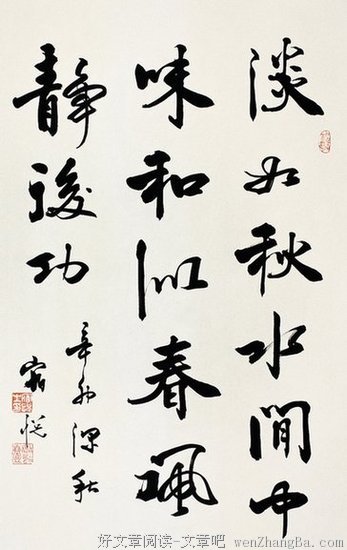 淡如秋水間中
味和似春風
靜後功
辛卯深秋
好文章阅读-文章吧 wenZhangBa.Com